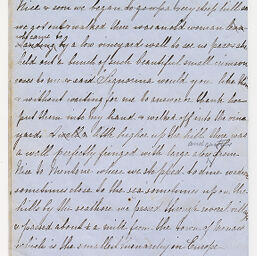 Nice & soon we began to go up a very steep hill so
we got out & walked there was an old woman &
standing by a low vineyard wall to see us pass she
held out a bunch of such beautiful small crimson
roses to me & said Signorina would you like them
& without waiting for me to answer or thank her
put them into my hand & walked off into the vine
yards & a little higher up the hill there was
a well perfectly fringed with large
Nice to Mentone where we stopped to dine
sometimes close to the sea sometimes up on the
hills by the seashore we passed through several
& passed about ½ a mile from the town of Monaco
which is the smallest monarchy in Europe